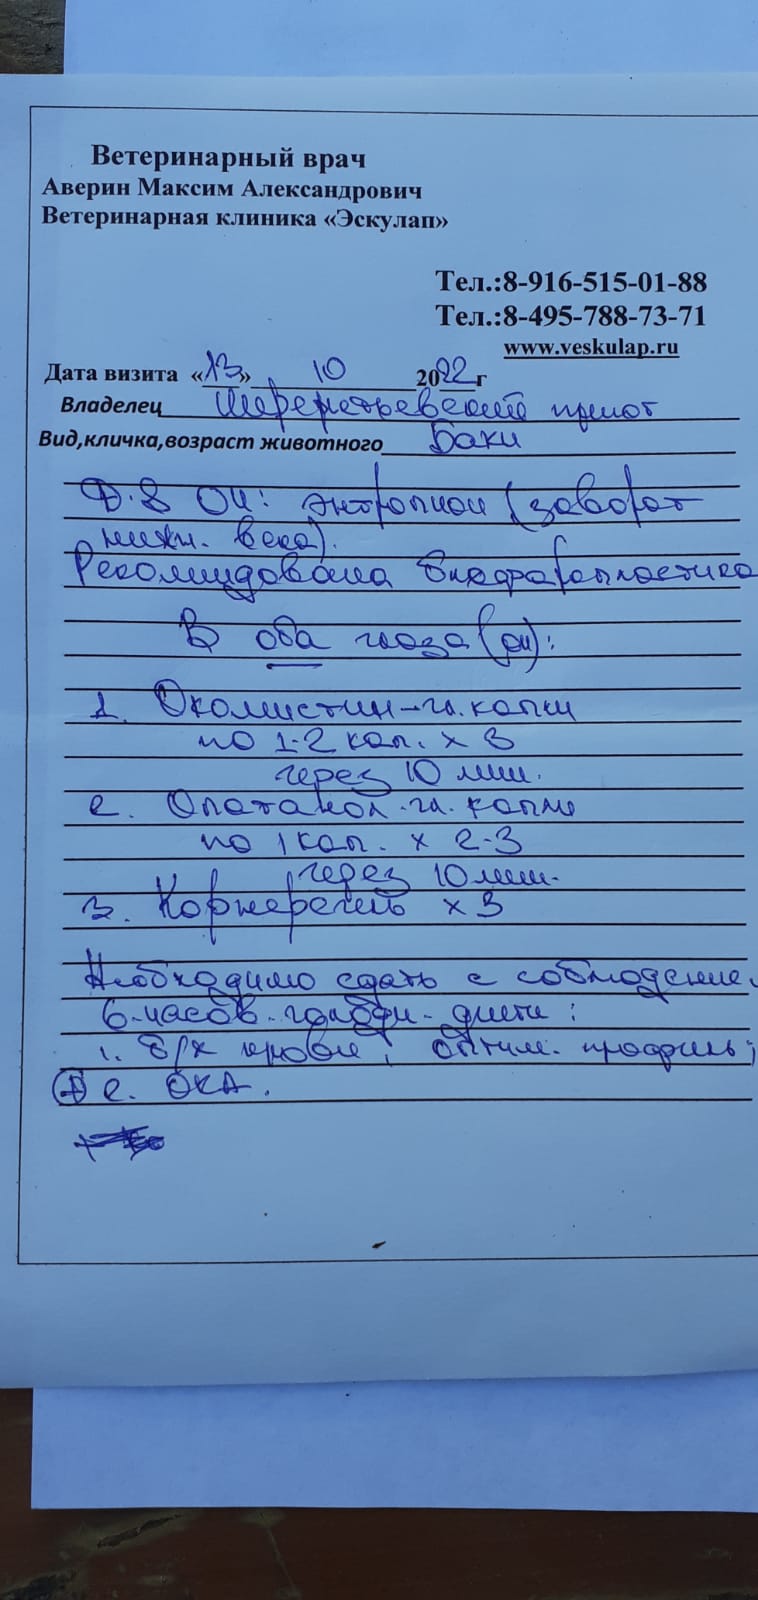 Ветеринарный врач
Аверин Максим Александрович
Ветеринарная клиника «Эскулап»
Тел.:8-916-515-01-88
Тел.:8-495-788-73-71
www.veskulap.ru
Дата визита «13» 10 2022г
Владелец Шереметьевский приют
Вид,кличка,возраст животного Баки
Д.S OU: энтропион (заворот
нижн. века).
Рекомендована блефаропластика
В оба глаза (OU):
1. Окомистин-гл. капли
по 1-2 кап. x 3
через 10 мин.
2. Опатанол-гл. капли
по 1 кап. x 2-3
через 10 мин.
3. Корнерегель x 3
Необходимо сдать с соблюдение.
6-часов-голодн-диеты:
1. Б/х крови, оптим. профиль;
2. ОКА.